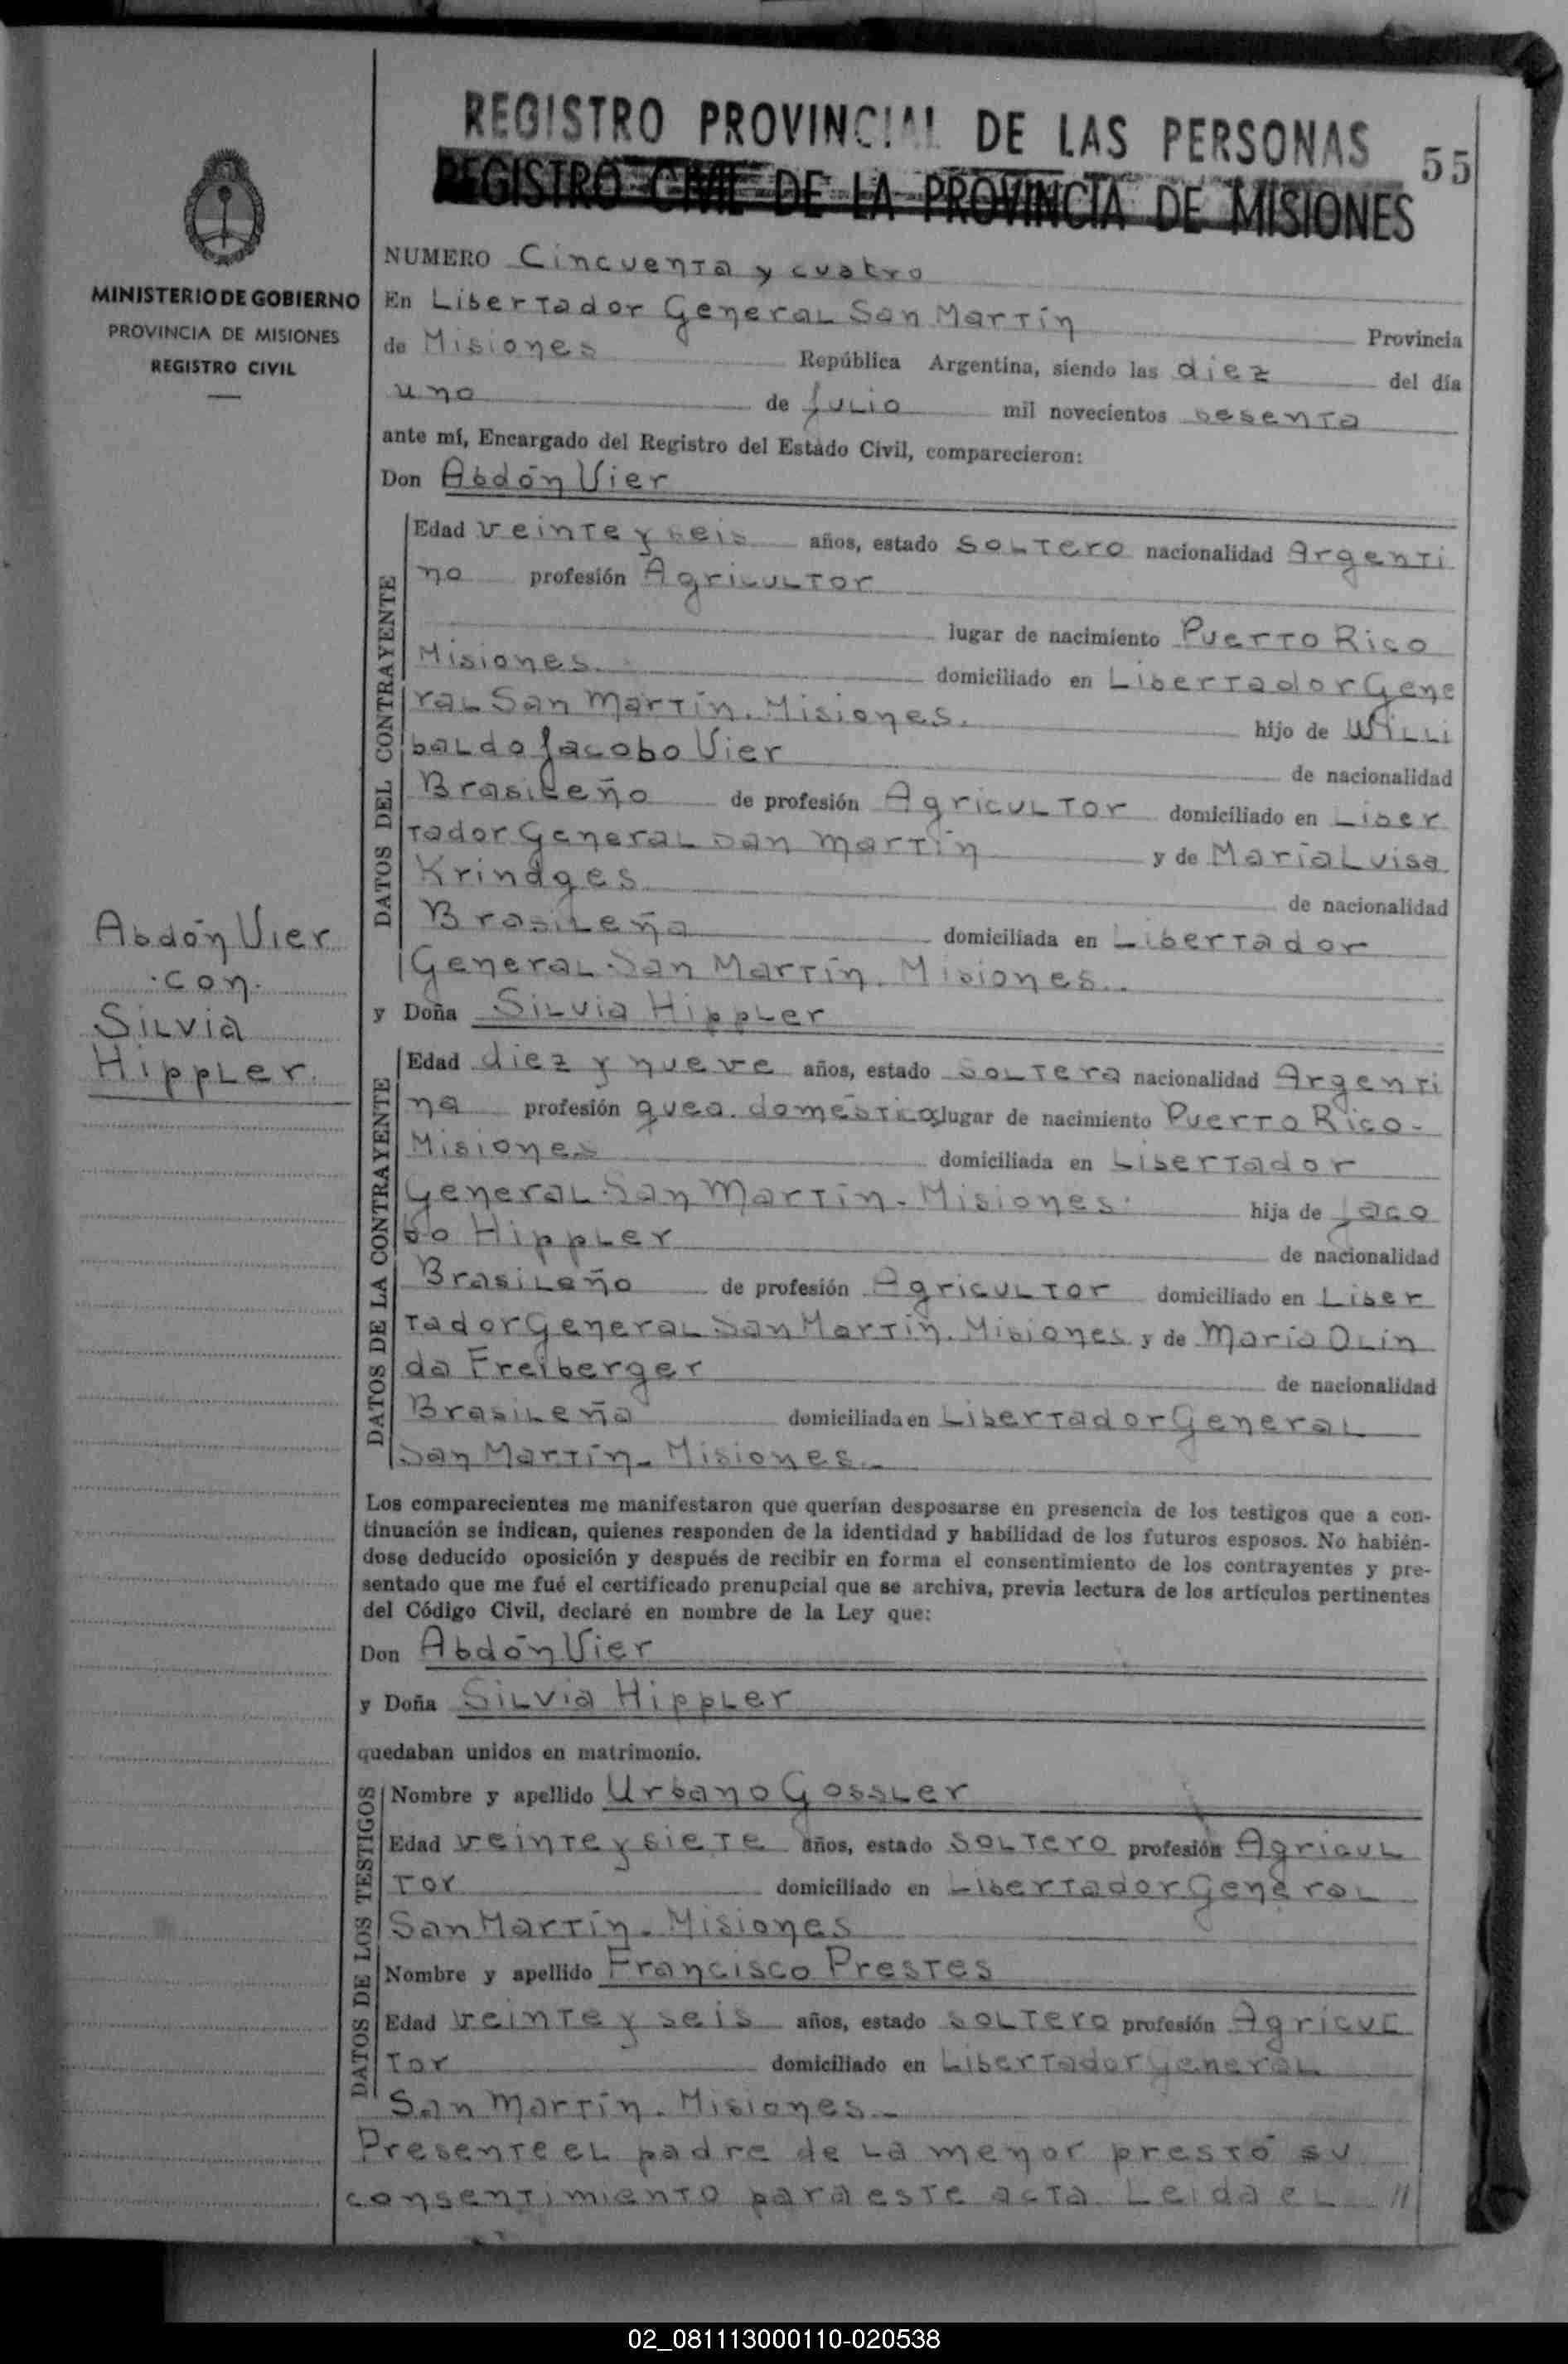 REGISTRO PROVINCIAL DE LAS PERSONAS
55
REGISTRO CIVIL DE LA PROVINCIA DE MISIONES
MINISTERIO DE GOBIERNO
PROVINCIA DE MISIONES
REGISTRO CIVIL
Abdón Vier
con
Silvia
Hippler.
NUMERO Cincuenta y cuatro
En Libertador General San Martín Provincia
de Misiones República Argentina, siendo las diez del día
uno de Julio mil novecientos sesenta
ante mí, Encargado del Registro del Estado Civil, comparecieron:
Don Abdón Vier
DATOS DEL CONTRAYENTE
Edad veinte y seis años, estado soltero nacionalidad Argenti
no profesión Agricultor
lugar de nacimiento Puerto Rico
Misiones. domiciliado en Libertador Gene
ral San Martín. Misiones. hijo de Willi
baldo Jacobo Vier de nacionalidad
Brasileño de profesión Agricultor domiciliado en Liber
tador General San Martín y de María Luisa
Krindges de nacionalidad
Brasileña domiciliada en Libertador
General San Martín. Misiones.
y Doña Silvia Hippler
DATOS DE LA CONTRAYENTE
Edad diez y nueve años, estado soltera nacionalidad Argenti
na profesión quea. domésticos lugar de nacimiento Puerto Rico-
Misiones domiciliada en Libertador
General San Martín- Misiones. hija de Jaco
bo Hippler de nacionalidad
Brasileño de profesión Agricultor domiciliado en Liber
tador General San Martín. Misiones y de María Olin
da Freiberger de nacionalidad
Brasileña domiciliada en Libertador General
San Martín- Misiones-
Los comparecientes me manifestaron que querían desposarse en presencia de los testigos que a con-
tinuación se indican, quienes responden de la identidad y habilidad de los futuros esposos. No habién-
dose deducido oposición y después de recibir en forma el consentimiento de los contrayentes y pre-
sentado que me fué el certificado prenupcial que se archiva, previa lectura de los artículos pertinentes
del Código Civil, declaré en nombre de la Ley que:
Don Abdón Vier
y Doña Silvia Hippler
quedaban unidos en matrimonio.
DATOS DE LOS TESTIGOS
Nombre y apellido Urbano Gossler
Edad veinte y siete años, estado soltero profesión Agricul
tor domiciliado en Libertador General
San Martín- Misiones
Nombre y apellido Francisco Prestes
Edad veinte y seis años, estado soltero profesión Agricul
tor domiciliado en Libertador General
San Martín- Misiones-
Presente el padre de la menor prestó su
consentimiento para este acta Leida el //
02_081113000110-020538